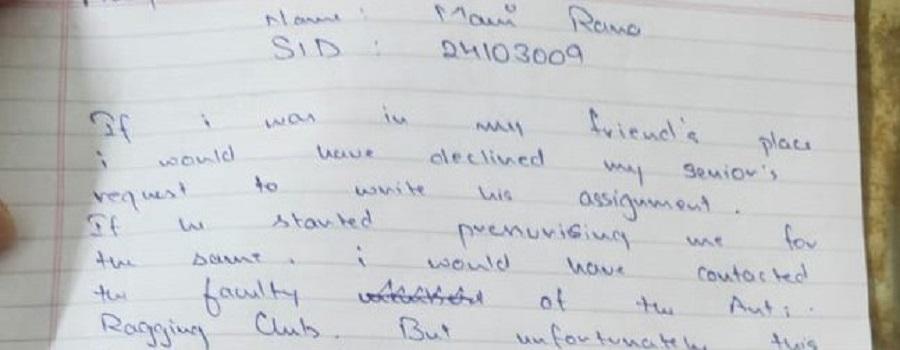 Name : Mani Rana
SID : 24103009
If i was in my friend's place
i would have declined my senior's
request to write his assignment.
If he started pressurising me for
the same. i would have contacted
the faculty of the Anti.
Ragging Club. But unfortunately this